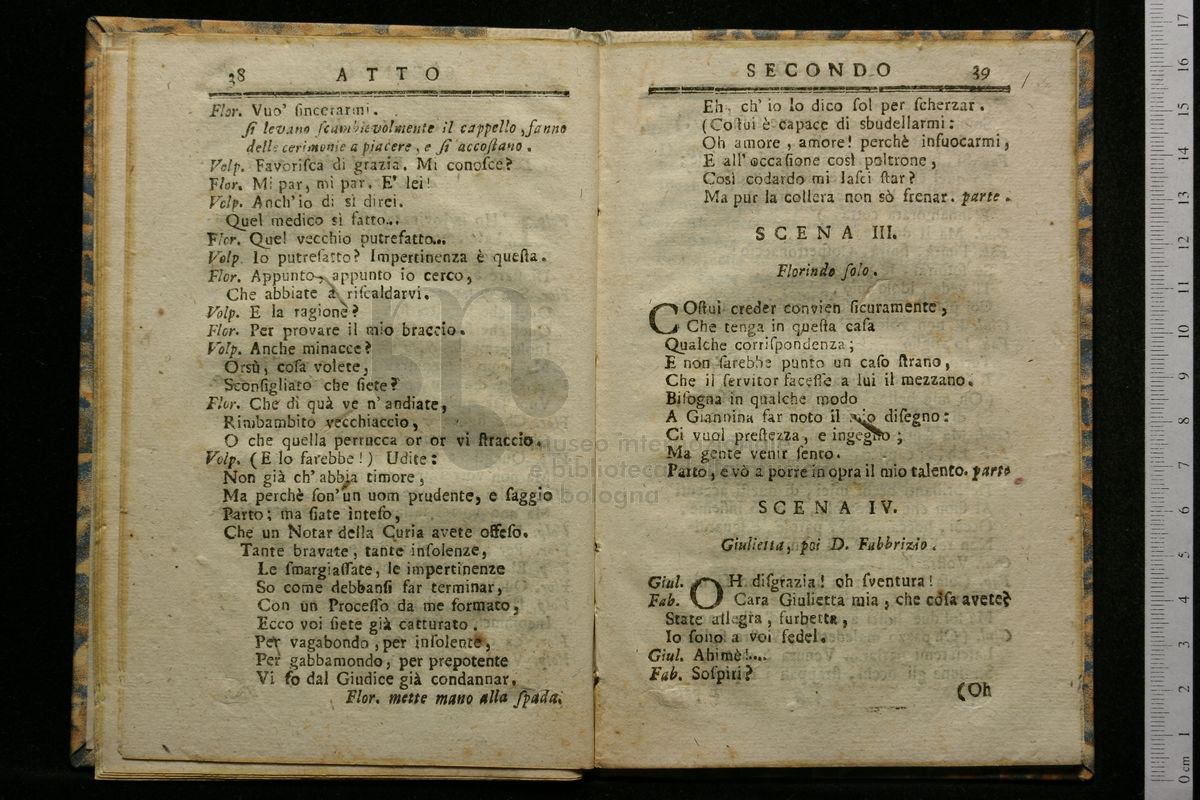 38 ATTO
Flor. Vuo' ſincerarmi.
ſi levano ſcambievolmente il cappello, fanno
delle cerimonie a piacere, e ſi accoſtano.
Volp. Favoriſca di grazia. Mi conoſce?
Flor. Mi par, mi par. E' lei!
Volp. Anch'io di sì direi.
Quel medico sì fatto...
Flor. Quel vecchio putrefatto...
Volp. Io putrefatto? Impertinenza è queſta.
Flor. Appunto, appunto io cerco,
Che abbiate a riſcaldarvi.
Volp. E la ragione?
Flor. Per provare il mio braccio.
Volp. Anche minacce?
Orsù, coſa volete,
Sconſigliato che ſiete?
Flor. Che di quà ve n'andiate,
Rimbambito vecchiaccio,
O che quella perrucca or or vi ſtraccio.
Volp. (E lo farebbe!) Udite:
Non già ch'abbia timore,
Ma perchè ſon'un uom prudente, e ſaggio
Parto; ma ſiate inteſo,
Che un Notar della Curia avete offeſo.
Tante bravate, tante inſolenze,
Le ſmargiaſſate, le impertinenze
So come debbanſi far terminar,
Con un Proceſſo da me formato,
Ecco voi ſiete già catturato.
Per vagabondo, per inſolente,
Per gabbamondo, per prepotente
Vi fo dal Giudice già condannar.
Flor. mette mano alla ſpada.
SECONDO 39
Eh, ch'io lo dico ſol per ſcherzar.
(Coſtui è capace di sbudellarmi:
Oh amore, amore! perchè infuocarmi,
E all'occaſione così poltrone,
Così codardo mi laſci ſtar?
Ma pur la collera non sò frenar. parte.
SCENA III.
Florindo ſolo.
COſtui creder convien ſicuramente,
Che tenga in queſta caſa
Qualche corriſpondenza;
E non ſarebbe punto un caſo ſtrano,
Che il ſervitor faceſſe a lui il mezzano.
Biſogna in qualche modo
A Giannina far noto il mio diſegno:
Ci vuol preſtezza, e ingegno;
Ma gente venir ſento.
Parto, e vò a porre in opra il mio talento. parte
SCENA IV.
Giulietta, poi D. Fabbrizio.
Giul. OH diſgrazia! oh ſventura!
Fab. Cara Giulietta mia, che coſa avete?
State allegra, furbetta,
Io ſono a voi fedel.
Giul. Ahimè!....
Fab. Soſpiri?
(Oh
museo internazionale
e biblioteca
bologna
0 cm 1 2 3 4 5 6 7 8 9 10 11 12 13 14 15 16 17